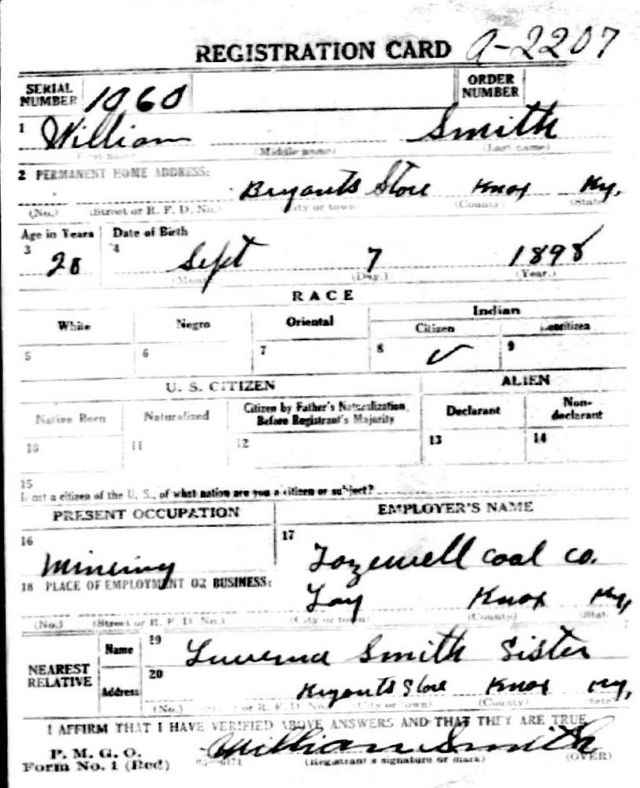 REGISTRATION CARD a-2207
SERIAL NUMBER 1060 ORDER NUMBER
1 William Smith
(First name) (Middle name) (Last name)
2 PERMANENT HOME ADDRESS:
Bryants Store Knox Ky.
(No.) (Street or R. F. D. No.) (City or town) (County) (State)
Age in Years Date of Birth
3 20 4 Sept 7 1898
(Month) (Day.) (Year.)
RACE
White Negro Oriental Indian
Citizen Noncitizen
5 6 7 8 ✓ 9
U. S. CITIZEN ALIEN
Native Born Naturalized Citizen by Father's Naturalization Before Registrant's Majority Declarant Non-declarant
10 11 12 13 14
15
If not a citizen of the U. S., of what nation are you a citizen or subject?
PRESENT OCCUPATION EMPLOYER'S NAME
16 Mineing 17 Tazewell Coal Co.
18 PLACE OF EMPLOYMENT OR BUSINESS:
Knox Ky,
(No.) (Street or R. F. D. No.) (City or town) (County) (State)
NEAREST RELATIVE Name 19 Smith Sister
Address 20 Bryants Store Knox Ky,
(No.) (Street or R. F. D. No.) (City or town) (County) (State)
I AFFIRM THAT I HAVE VERIFIED ABOVE ANSWERS AND THAT THEY ARE TRUE
P. M. G. O.
Form No. 1 (Red) William Smith
(Registrant's signature or mark) (OVER)